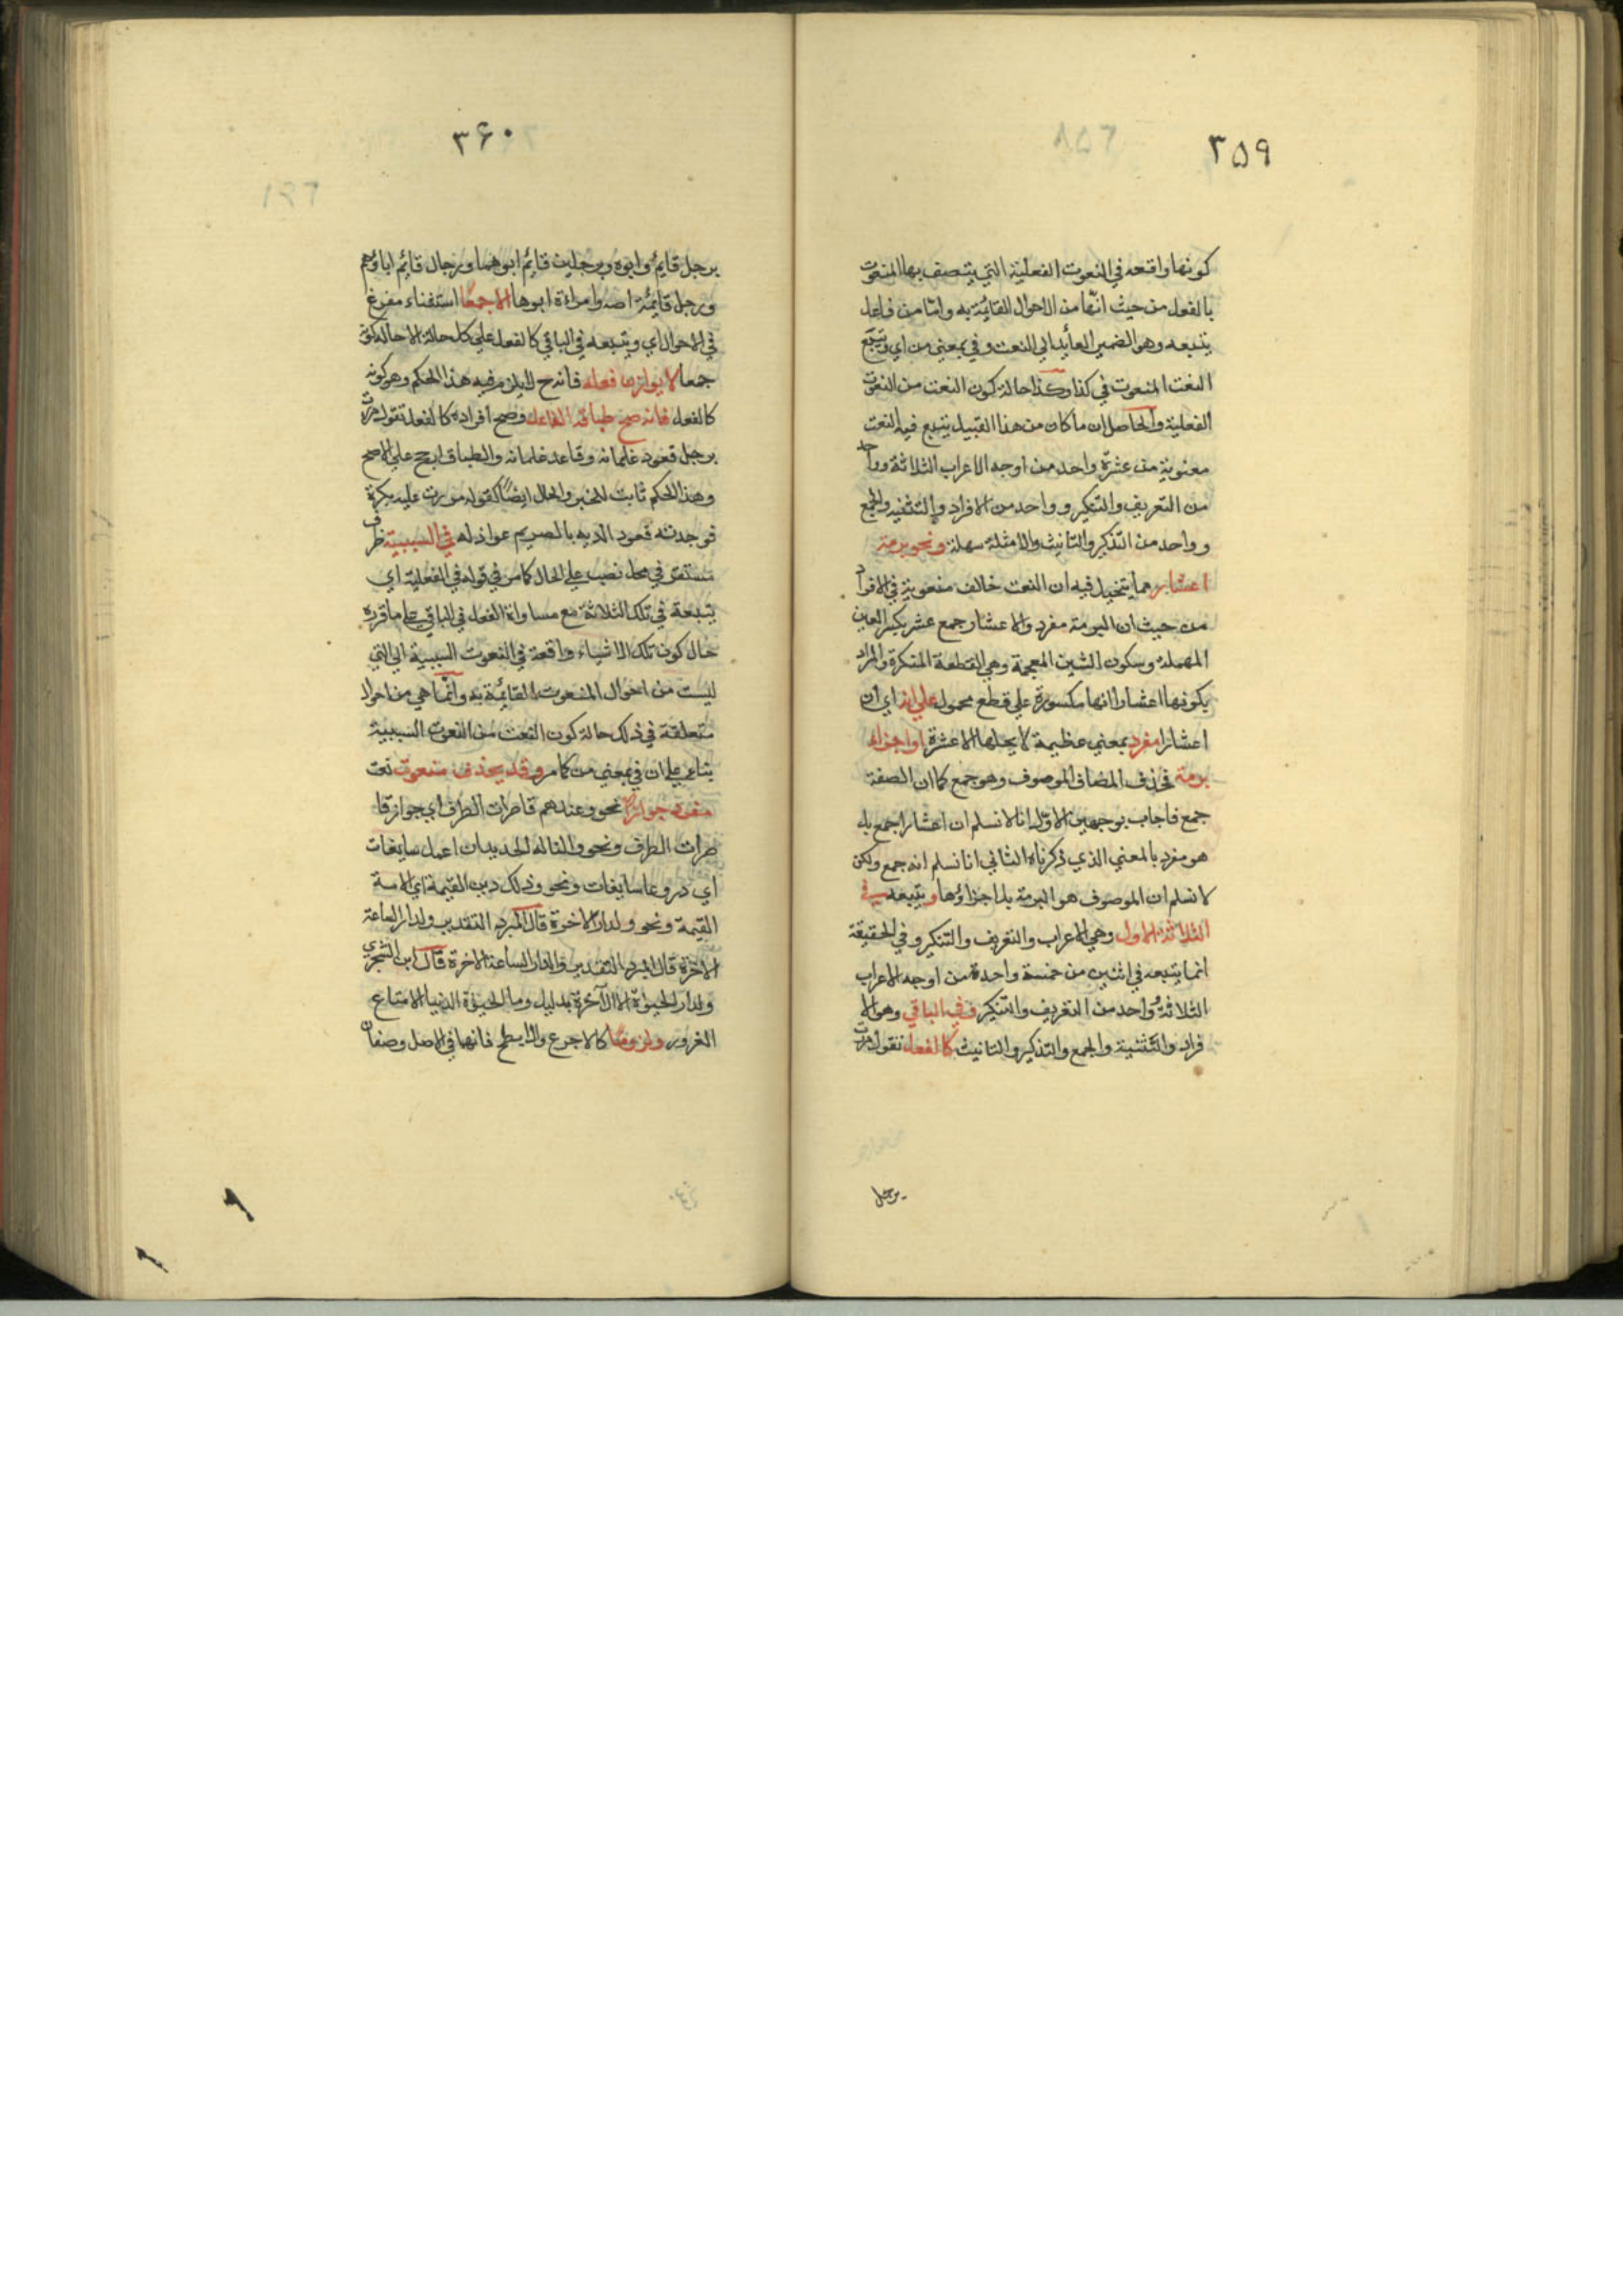 ٣٥٩
كونها واقعه في النعوت الفعلية التي يتصف بها المنعوت
بالفعل من حيث انها من الاحوال القائمة به واما من فاعل
يتبعه وهو الضمير العايد الي النعت و في بمعني من اي ويتبع
النعت المنعوت في كذا وكذا حالة كون النعت من النعوت
الفعلية والحاصل ان ما كان من هذا القبيل يتبع فيه النعت
منعوته من عشرة واحد من اوجه الاعراب الثلاثة وواحد
من التعريف والتنكير وواحد من الافراد والتثنيه والجمع
وواحد من التذكير والتانيث والامثلة سهلة ونحو برمة
اعشار مما يتخيل فيه ان النعت خالف منعوته في الافراد
من حيث ان البرمة مفرد والاعشار جمع عشر بكسر العين
المهملة وسكون الشين المعجمة وهي القطعة المتكرة والمراد
بكونها اعشارا انها مكسورة علي قطع محمول علي انه اي ان
اعشارا مفرد بمعني عظيمة لا يحلها الا عشرة او اجزاء
برمة فحذف المضاف الموصوف وهو جمع كما ان الصفة
جمع فاجاب بوجهين الاول انا لا نسلم ان اعشارا جمع بل
هو مفرد بالمعني الذي ذكرناه الثاني انا نسلم انه جمع ولكن
لا نسلم ان الموصوف هو البرمة بل اجزاؤها ويتبعه في
الثلاثة الاول وهي الاعراب والتعريف والتنكير و في الحقيقة
انما يتبعه في اثنين من خمسة واحدة من اوجه الاعراب
الثلاثة وواحد من التعريف والتنكير و في الباقي وهو الا
فراد والتثنية والجمع والتذكير والتانيث كالفعل تقول مررت
برجل
٣۶٠
برجل قايم وابوه وبرجلين قايم ابوهما وبرجال قايم اباؤهم
وبرجل قايمة امه وامراة ابوها الا جمعا استثناء مفرغ
في الاحوال اي ويتبعه في الباقي كالفعل علي كل حالة الا حالة كونه
جمعا لا يوازن فعله فانه ح لا يلزم فيه هذا الحكم وهو كونه
كالفعل فانه صح طباقه الفاعل وصح افراده كالفعل تقول مررت
برجل قعود غلمانه وقاعد غلمانه والطباق ارجح علي الاصح
وهذا الحكم ثابت للخبر والحال ايضا كقوله مررت عليه بكرة
فوجدته قعود الديه بالصريم عواذله في السببية ظرف
مستقر في محل نصب علي الحال كما مر في قوله في الفعلية اي
يتبعه في تلك الثلاثة مع مساواة الفعل في الباقي علي ما قرره
حال كون تلك الاشياء واقعة في النعوت السببية اي التي
ليست من احوال المنعوت القائمة به وانما هي من احوال
متعلقة في ذلك حالة كون النعت من النعوت السببية
بناء علي ان في بمعني من كما مر وقد يحذف منعوت نعت
مفرد جوازا نحو وعندهم قاصرات الطرف اي جوار قا
صرات الطرف ونحو والنا له الحديد ان اعمل سابغات
اي دروعا سابغات ونحو وذلك دين القيمة اي الامة
القيمة ونحو ولدار الاخرة قال المبرد التقدير ولدار الساعة
الاخرة قال المبرد التقدير والدار الساعة الاخرة قال ابن الشجري
ولدار الحيوة الاخرة بدليل وما الحيوة الدنيا الا متاع
الغرور ولزوما كالاجرع والابطح فانهما في الاصل وصفان